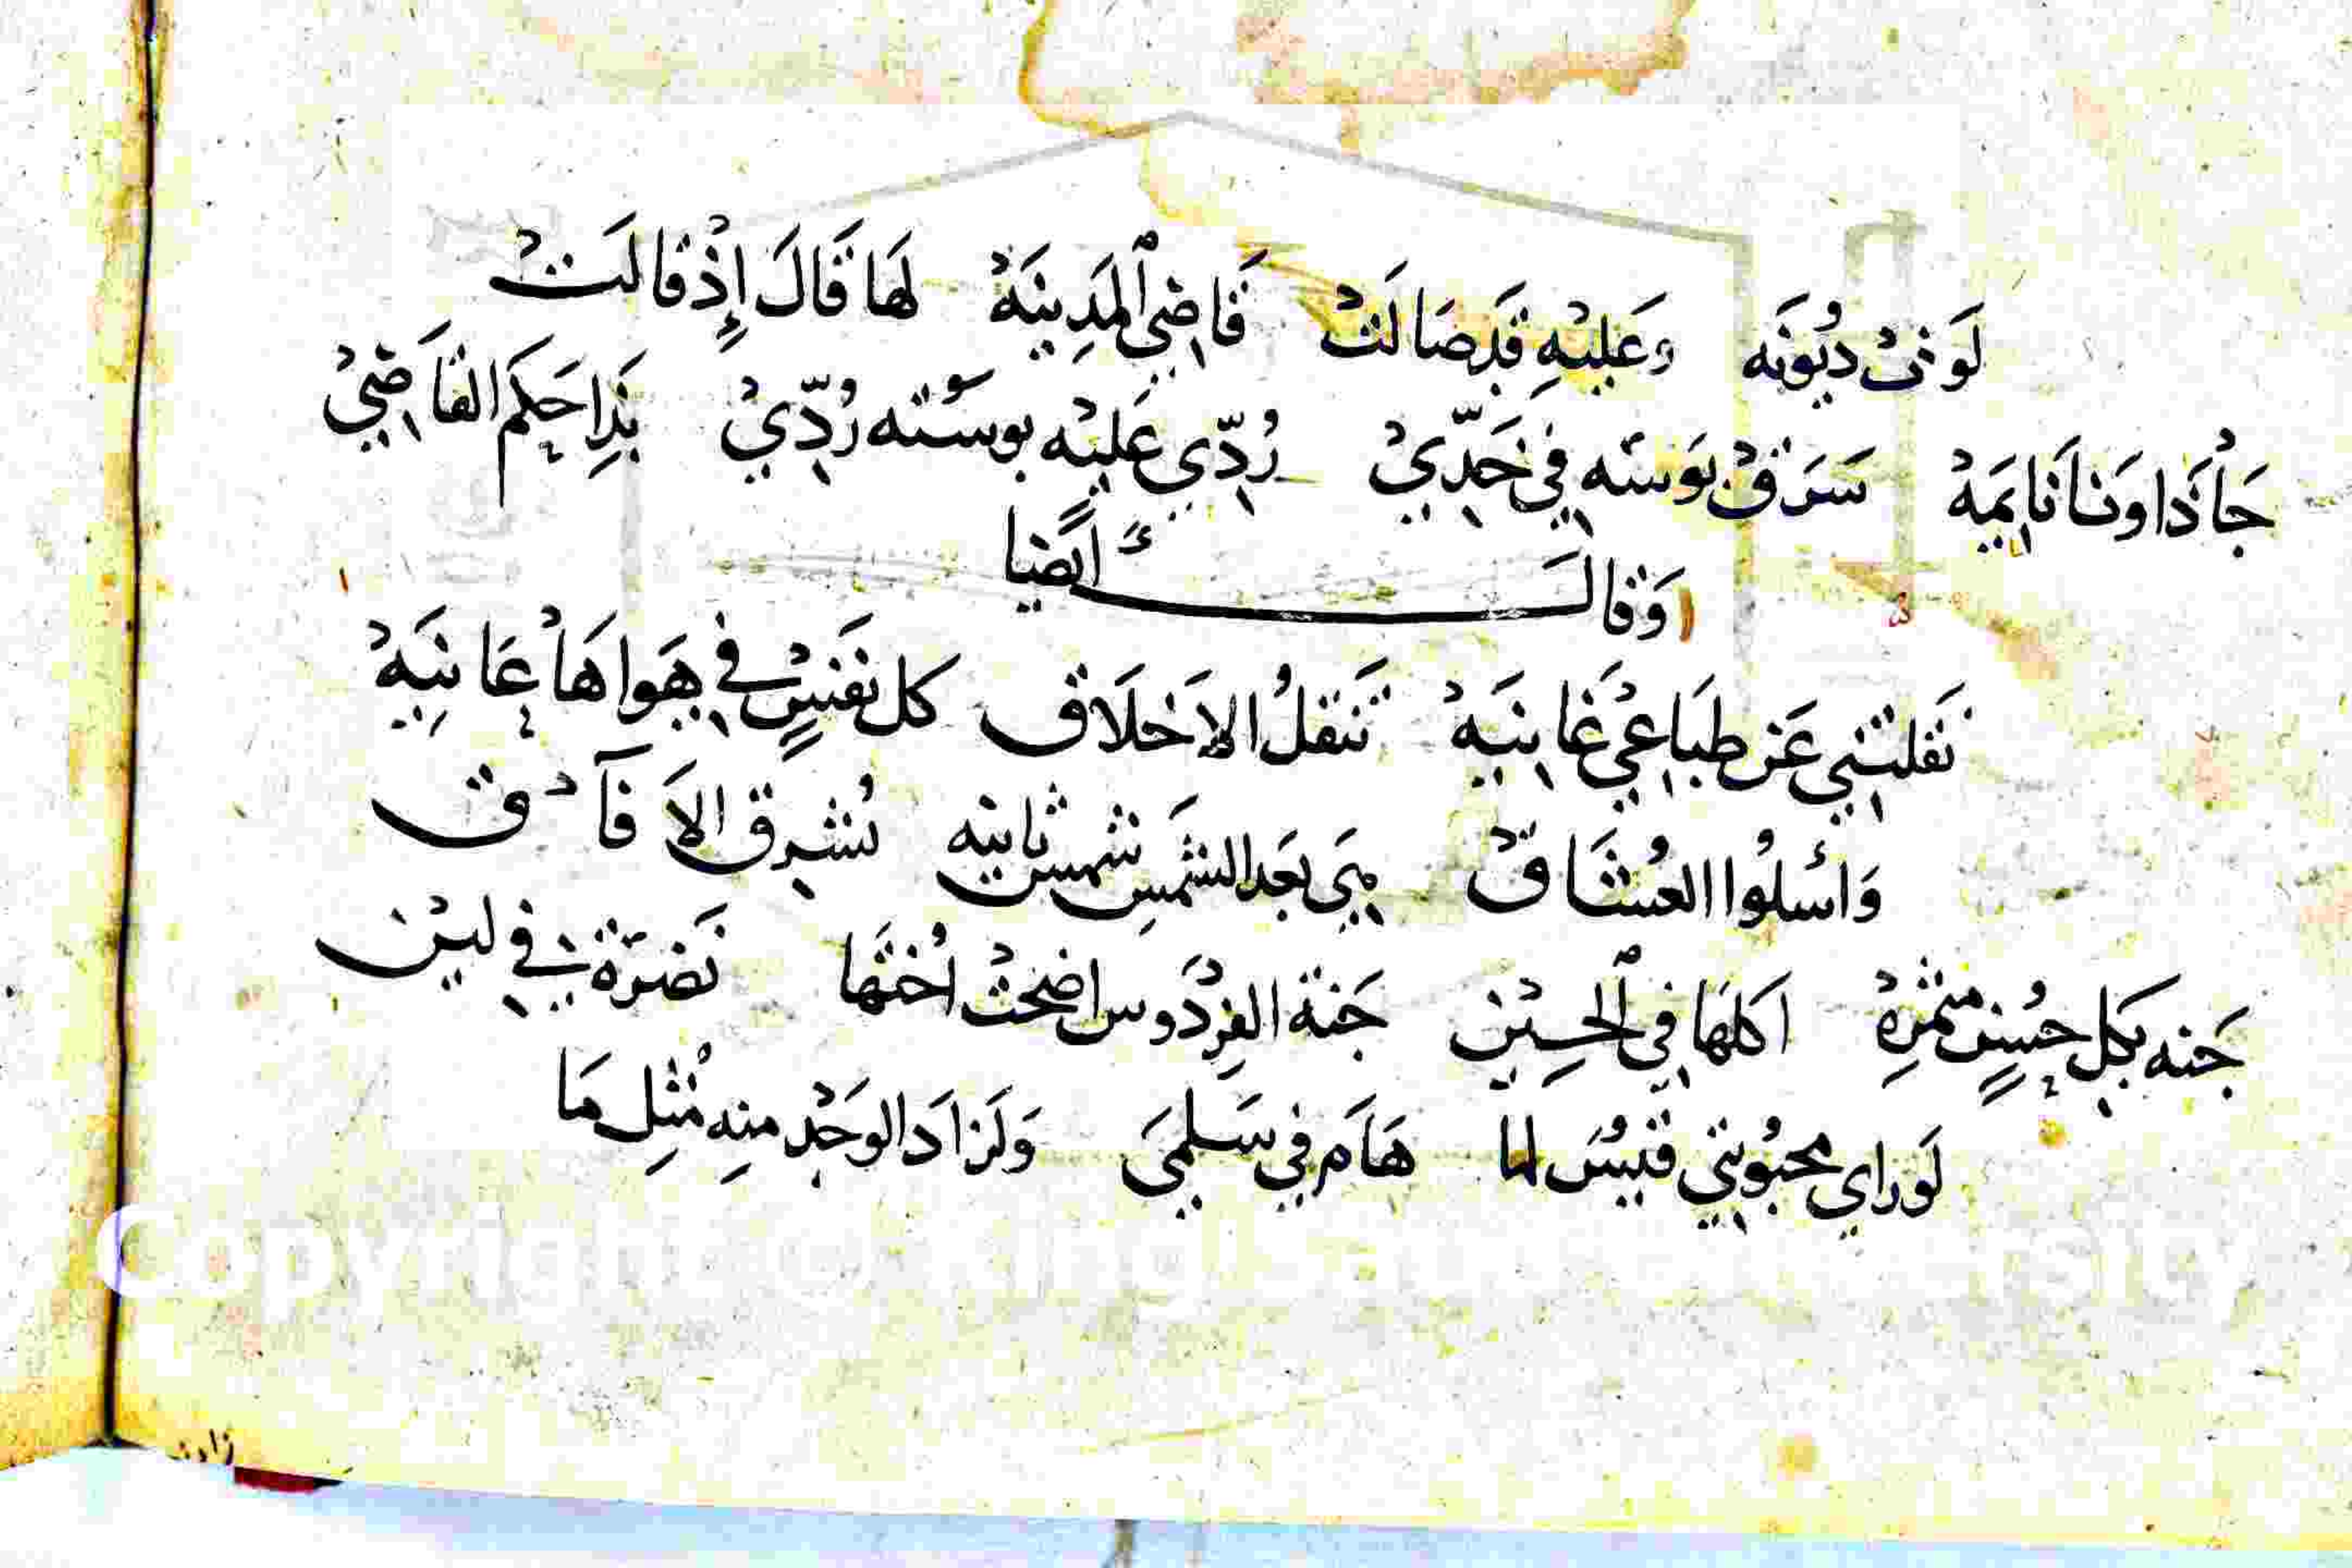 لَوَتْ دُيُونَه وَعَلَيْهِ قَد صَالَتْ قَاضِي ٱلمَدِينَهْ لَهَا قَالَ إِذْ قَالَتْ
جَاْ ذَا وَنَا نَايِمَهْ سَرَقْ بَوسَتَه فِي خَدِّيْ رُدِّي عَلَيْه بوسَتَه رُدِّيْ بَذِا حَكَم القَاضِيْ
وَقَالَ أَيْضًا
نَقَلَتْنِي عَن طَبَاعِي غَانِيَهْ تَنقلُ الاَخْلَاق كل نَفسٍ في هَوَاهَا عَانِيَهْ
وَاسْئَلُوا العُشَّاقْ هِيَ بَعد الشَّمسِ شَمس ثانيه تُشرِق الاَفَآقْ
جَنه بِكل حُسنٍ مثمْرِهْ اكلهَا فِي ٱلحسِيْن جَنة الفِرْدَوس اضحَتْ اُختَهَا نَضرَةً فِي لين
لَو راي محبُوبتي قَيسُ لما هَامَ فِي سَلمَى وَلَزادَ الوَجْدِ منِه مُثلِ مَا
زادني
Copyright © King Saud University